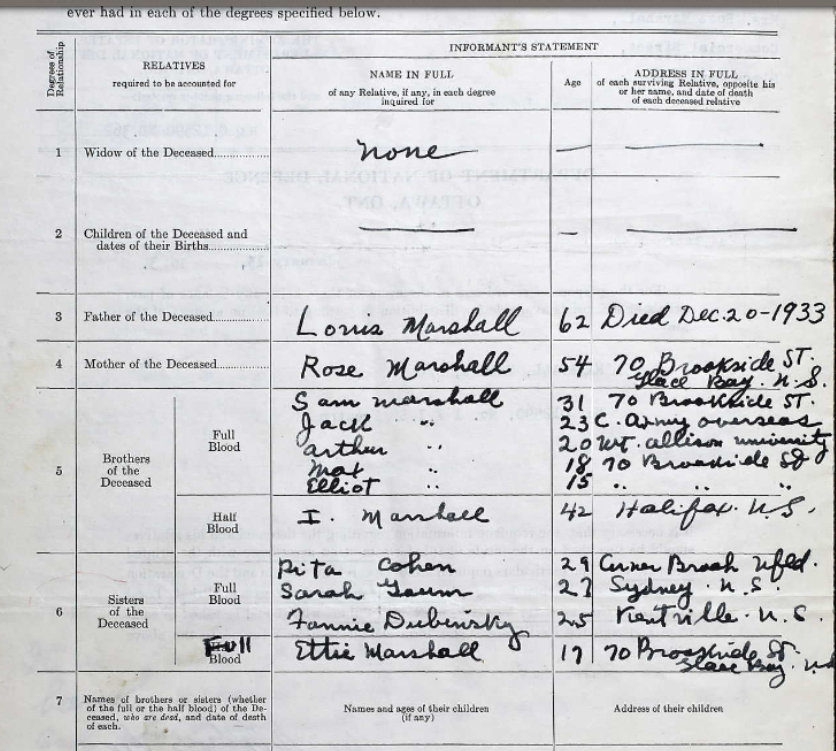 ever had in each of the degrees specified below.
Degrees of Relationship
RELATIVES
required to be accounted for
INFORMANT'S STATEMENT
NAME IN FULL
of any Relative, if any, in each degree
inquired for
Age
ADDRESS IN FULL
of each surviving Relative, opposite his
or her name, and date of death
of each deceased relative
1 Widow of the Deceased................ none — —
2 Children of the Deceased and
dates of their Births................ — — —
3 Father of the Deceased................ Louis Marshall 62 Died Dec. 20-1933
4 Mother of the Deceased................ Rose Marshall 54 70 Brookside ST.
Glace Bay. N.S.
5 Brothers
of the
Deceased
Full
Blood
Sam marshall 31 70 Brookside ST.
Jack " 23 C. Army overseas
arthur " 20 Mt. allison university
Max " 18 70 Brookside St
Elliot " 15 " " "
Half
Blood
I. Marshall 42 Halifax. N.S.
6 Sisters
of the
Deceased
Full
Blood
Rita Cohen 29 Corner Brook Nfld.
Sarah 27 Sydney. N.S.
Fannie Dubinsky 25 Kentville. N.S.
Full
Blood
Ettie Marshall 17 70 Brookside St.
Glace Bay. N.S
7 Names of brothers or sisters (whether
of the full or the half blood) of the De-
ceased, who are dead, and date of death
of each.
Names and ages of their children
(if any)
Address of their children